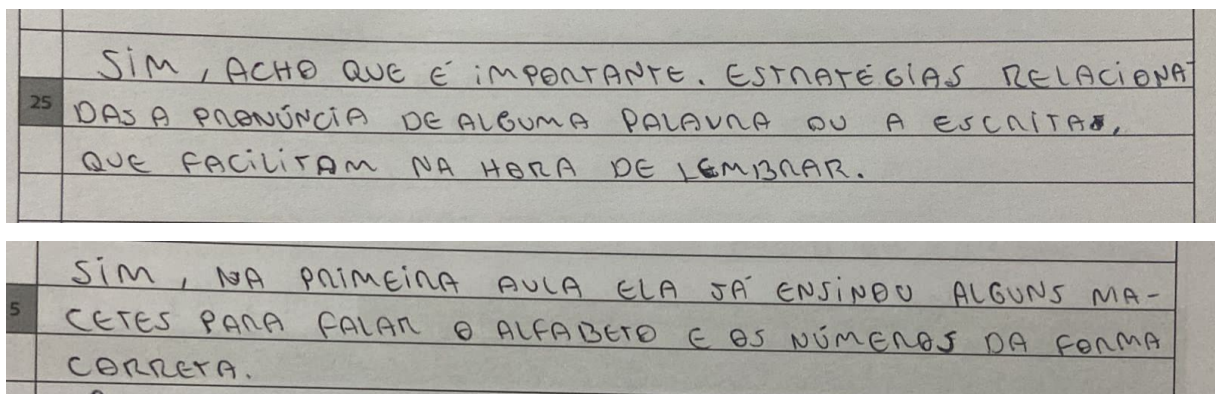 SIM, ACHO QUE É IMPORTANTE. ESTRATÉGIAS RELACIONA
25 DAS A PRONÚNCIA DE ALGUMA PALAVRA OU A ESCRITA,
QUE FACILITAM NA HORA DE LEMBRAR.
SIM, NA PRIMEIRA AULA ELA JÁ ENSINOU ALGUNS MA-
5 CETES PARA FALAR O ALFABETO E OS NÚMEROS DA FORMA
CORRETA.